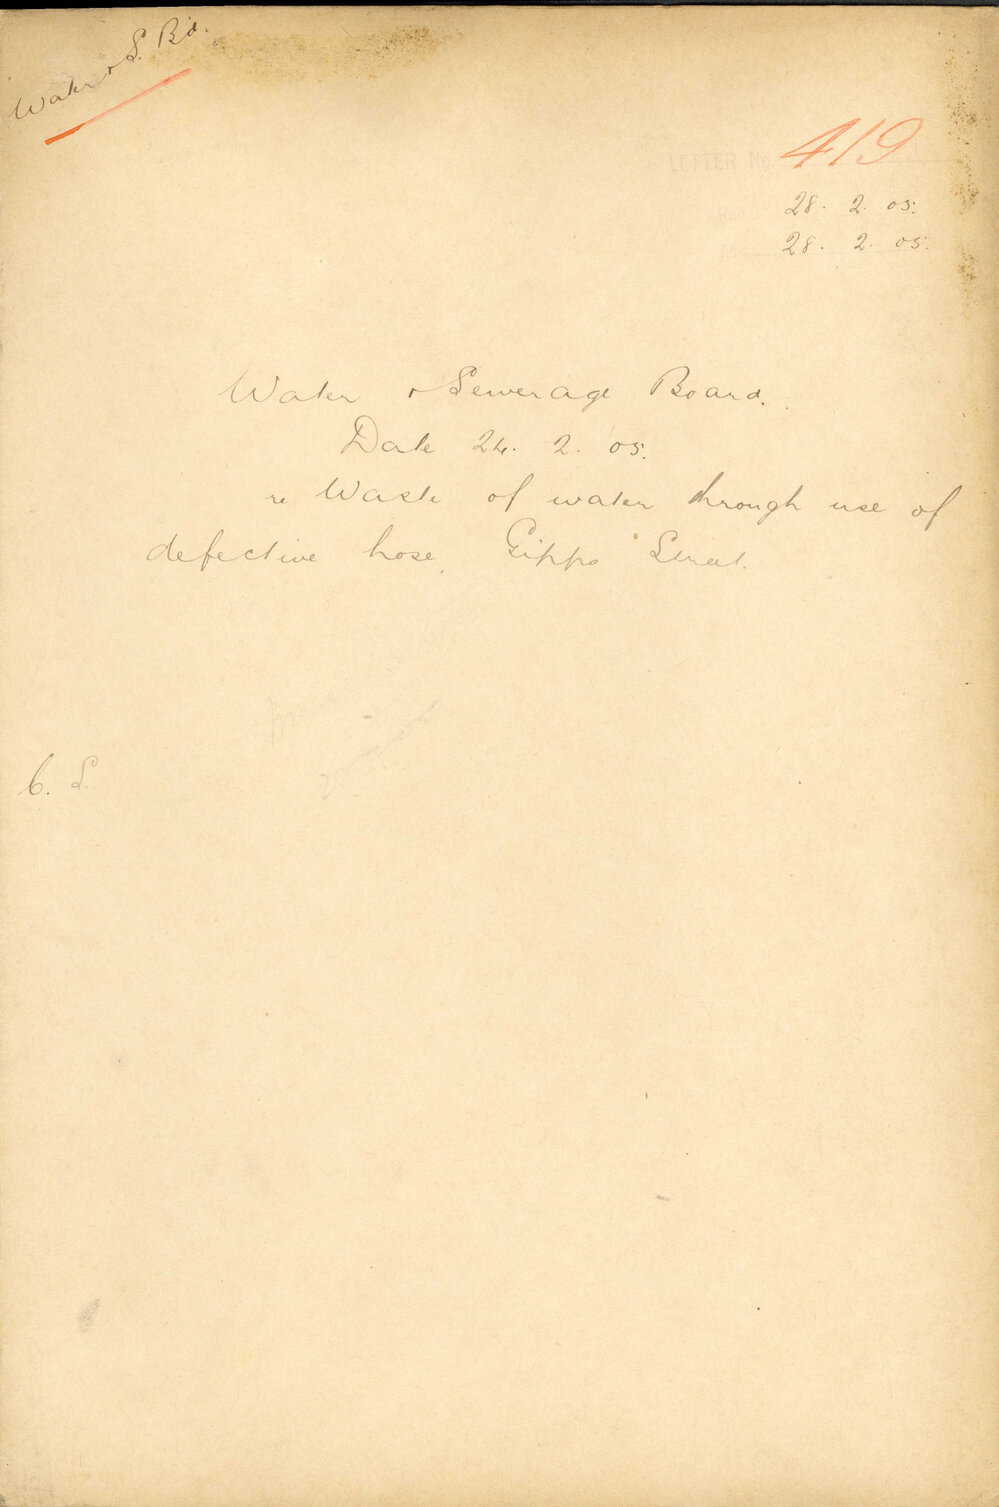 Water & S. Bd.
LETTER No. 419
28. 2. 05.
28. 2. 05.
Water & Sewerage Board.
Date 24. 2. 05.
re Waste of water through use of
defective hose, Gipps Street.
C. S.